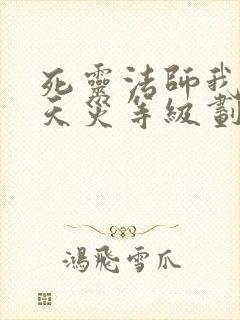 死靈法師我
天災等級劃
鴻飛雪爪